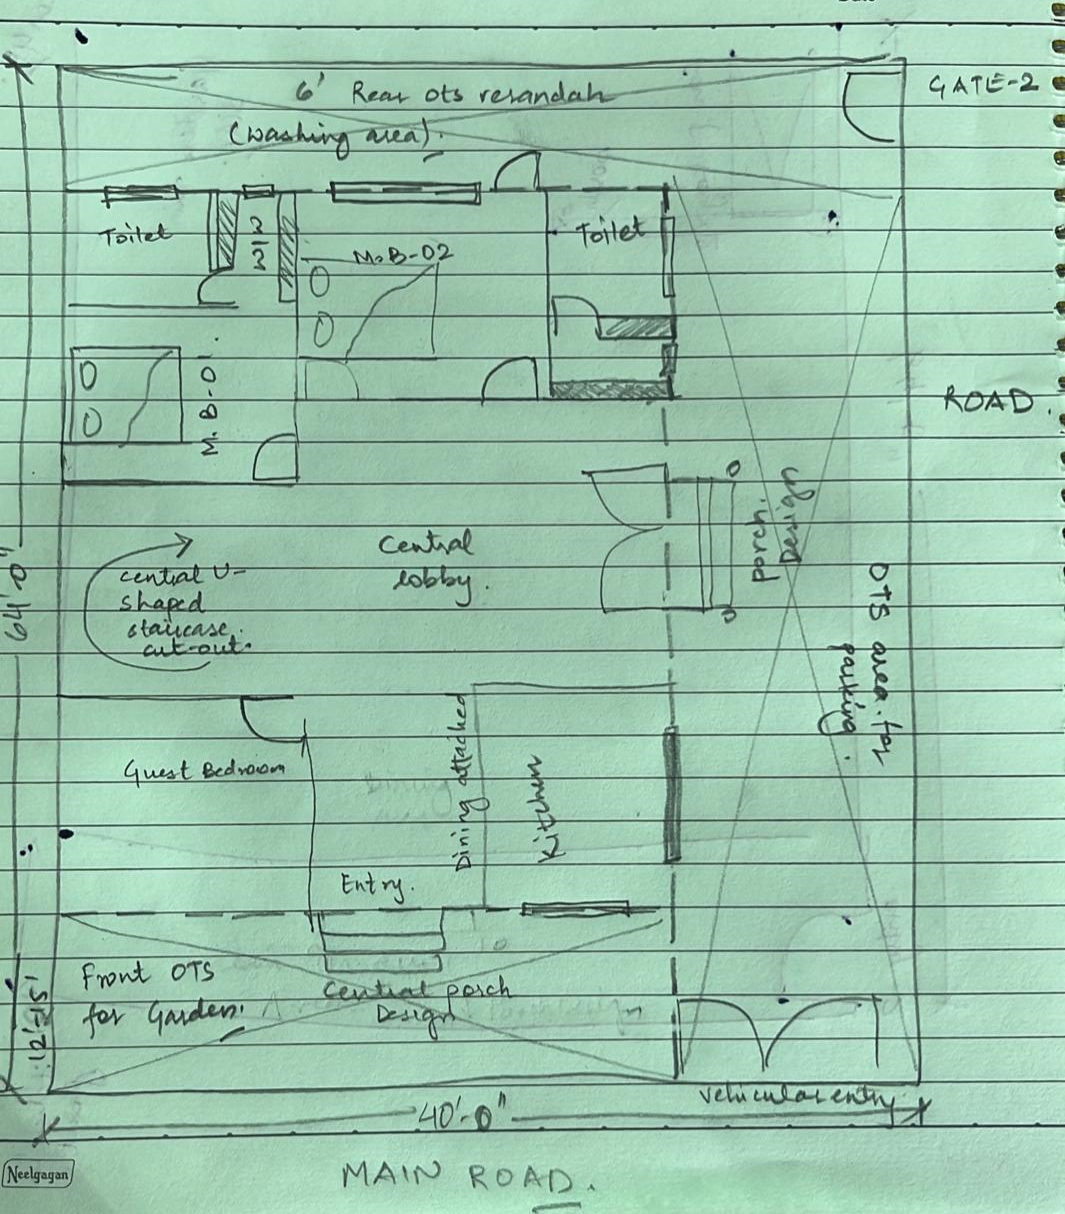 6' Rear OTS verandah
(washing area).
GATE-2
Toilet
M.B-02
Toilet
M.B-01.
ROAD.
Central
lobby.
Porch.
Design
central U-
shaped
staircase.
cut-out.
64'-0"
OTS area for
parking.
Guest Bedroom
Dining attached
Kitchen
Entry.
Front OTS
for Garden.
Central porch
Design
12'-15'
vehicular entry
40'-0"
Neelgagan
MAIN ROAD.